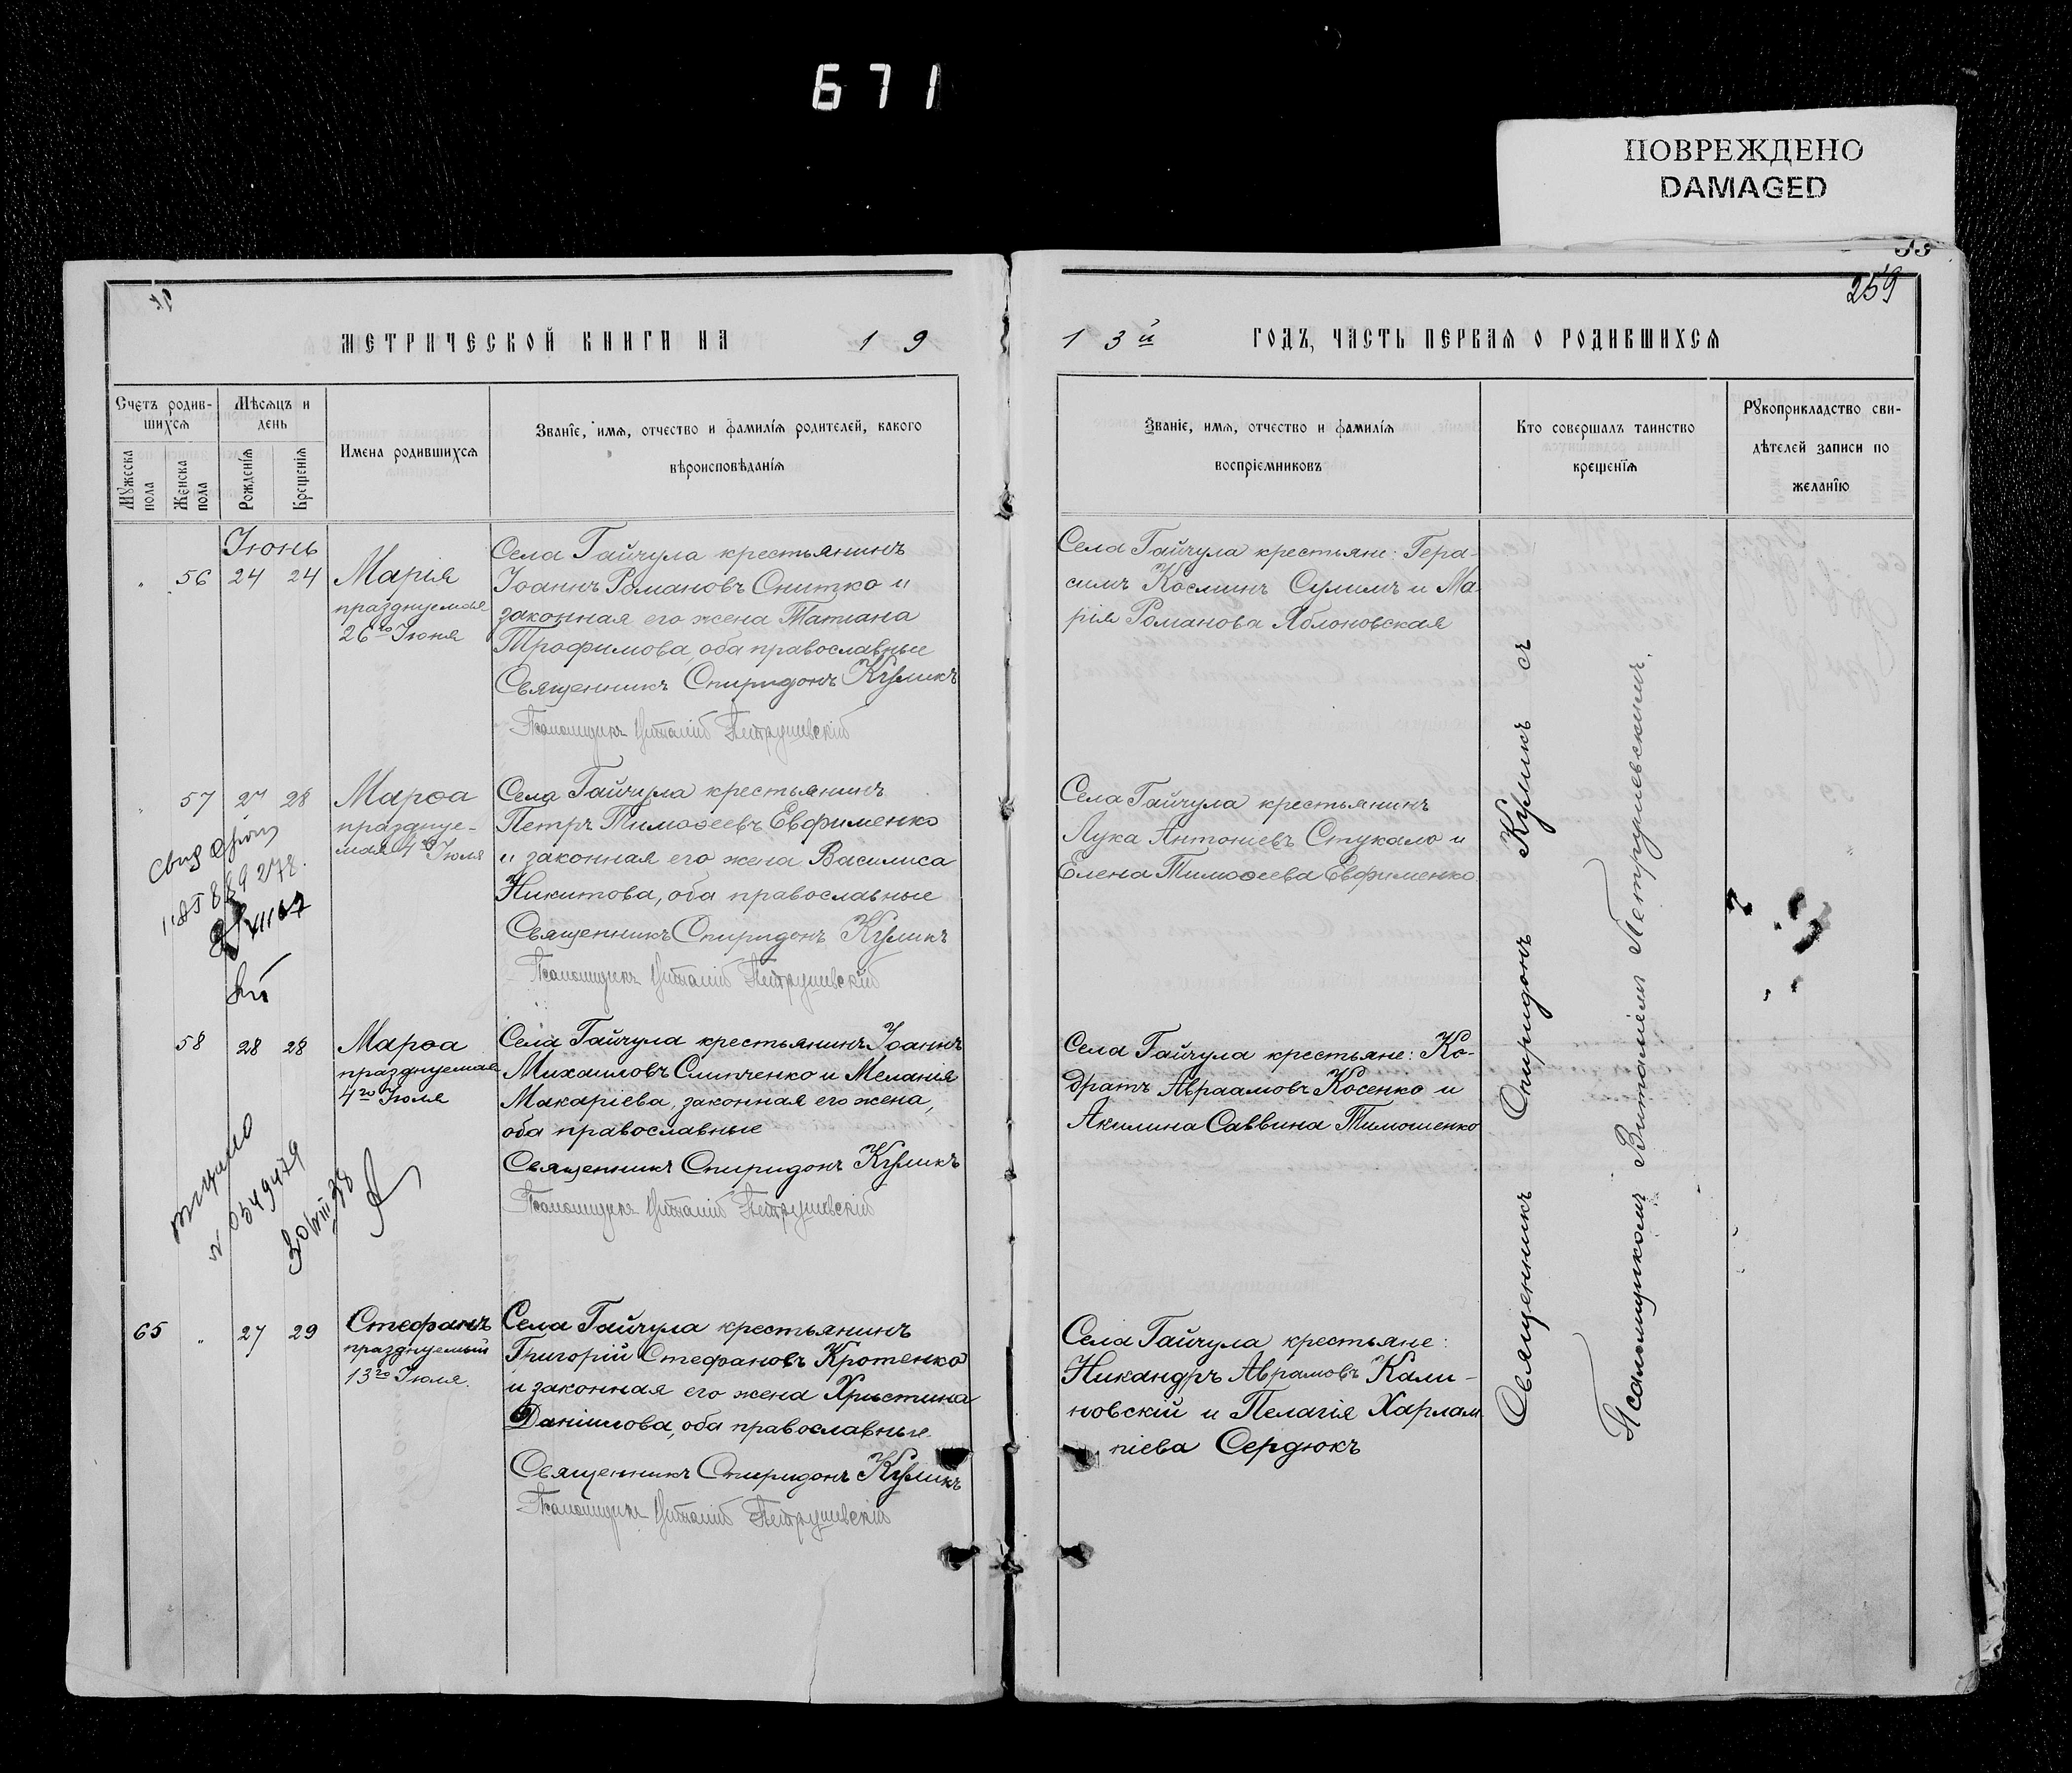 671
ПОВРЕЖДЕНО
DAMAGED
259
МЕТРИЧЕСКОЙ КНИГИ НА 19
13й ГОДЪ, ЧАСТЬ ПЕРВАЯ О РОДИВШИХСЯ
Счетъ родив-
шихся
Мѣсяцъ и
день
Мужеска
пола
Женска
пола
Рожденія
Крещенія
Имена родившихся
Званіе, имя, отчество и фамилія родителей, какого
вѣроисповѣданія
Званіе, имя, отчество и фамилія
воспріемниковъ
Кто совершалъ таинство
крещенія
Рукоприкладство сви-
дѣтелей записи по
желанію
Іюнь
56 24 24
Марія
празднуемая
26го Іюня
Села Гайчула крестьянинъ
Іоаннъ Романовъ Снитко и
законная его жена Татіана
Трофимова оба православные
Священникъ Спиридонъ Куликъ
Псаломщикъ Виталій Петрушевскій
Села Гайчула крестьяне: Гера-
симъ Косминъ Сулимъ и Ма-
рія Романова Яблоновская
57 27 28
Марѳа
празднуе-
мая 4го Іюля
Села Гайчула крестьянинъ
Петръ Тимоѳеевъ Евфименко
и законная его жена Василиса
Никитова, оба православные
Священникъ Спиридонъ Куликъ
Псаломщикъ Виталій Петрушевскій
Села Гайчула крестьянинъ
Лука Антоніевъ Стукало и
Елена Тимоѳеева Евфименко
58 28 28
Марѳа
празднуемая
4го Іюля
Села Гайчула крестьянинъ Іоаннъ
Михаиловъ Слипченко и Меланія
Макаріева, законная его жена,
оба православные
Священникъ Спиридонъ Куликъ
Псаломщикъ Виталій Петрушевскій
Села Гайчула крестьяне: Ко-
дратъ Авраамовъ Косенко и
Акилина Саввина Тимошенко
0349479
30/VIII 38
65 " 27 29
Стефанъ
празднуемый
13го Іюля.
Села Гайчула крестьянинъ
Григорій Стефановъ Кротенко
и законная его жена Христина
Даніилова, оба православные.
Священникъ Спиридонъ Куликъ
Псаломщикъ Виталій Петрушевскій
Села Гайчула крестьяне:
Никандръ Аврамовъ Кали-
новскій и Пелагія Харлам-
піева Сердюкъ
Священникъ Спиридонъ Куликъ съ
Псаломщикомъ Виталіемъ Петрушевскимъ.